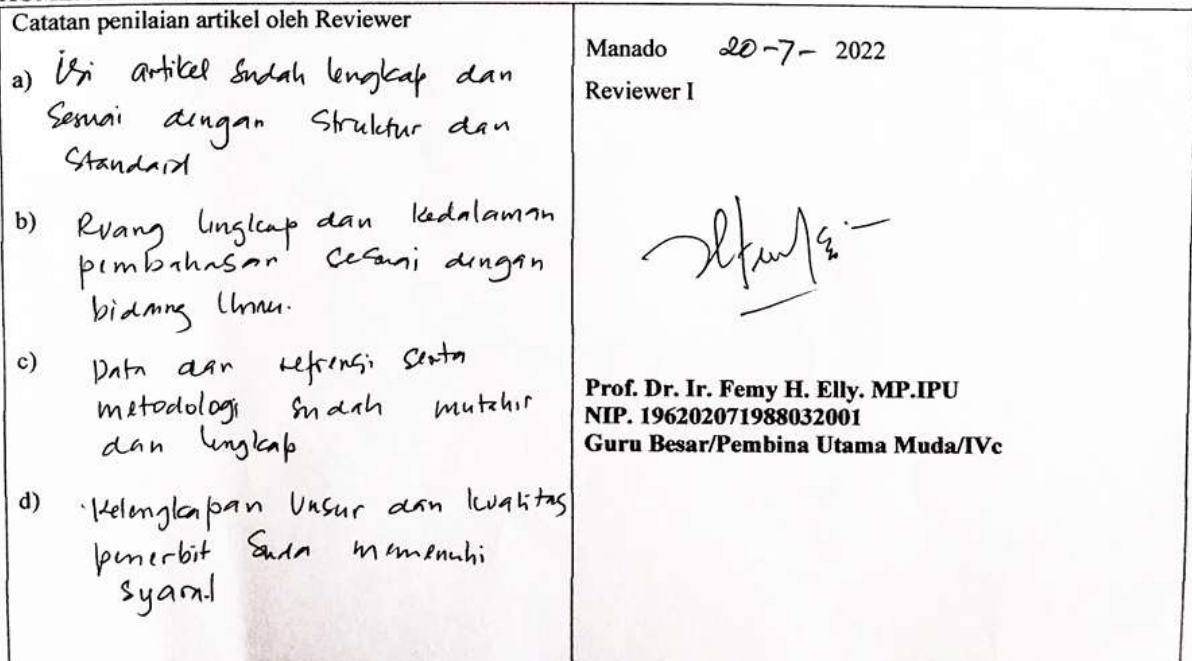 Catatan penilaian artikel oleh Reviewer
a) Isi artikel sudah lengkap dan
Sesuai dengan Struktur dan
Standard
b) Ruang lingkap dan kedalaman
pembahasan sesuai dengan
bidang ilmu.
c) Data dan refrensi serta
metodologi sudah mutahir
dan lengkap
d) Kelengkapan Unsur dan kualitas
penerbit Suda memenuhi
syarat
Manado 20-7- 2022
Reviewer I
Prof. Dr. Ir. Femy H. Elly. MP.IPU
NIP. 196202071988032001
Guru Besar/Pembina Utama Muda/IVc